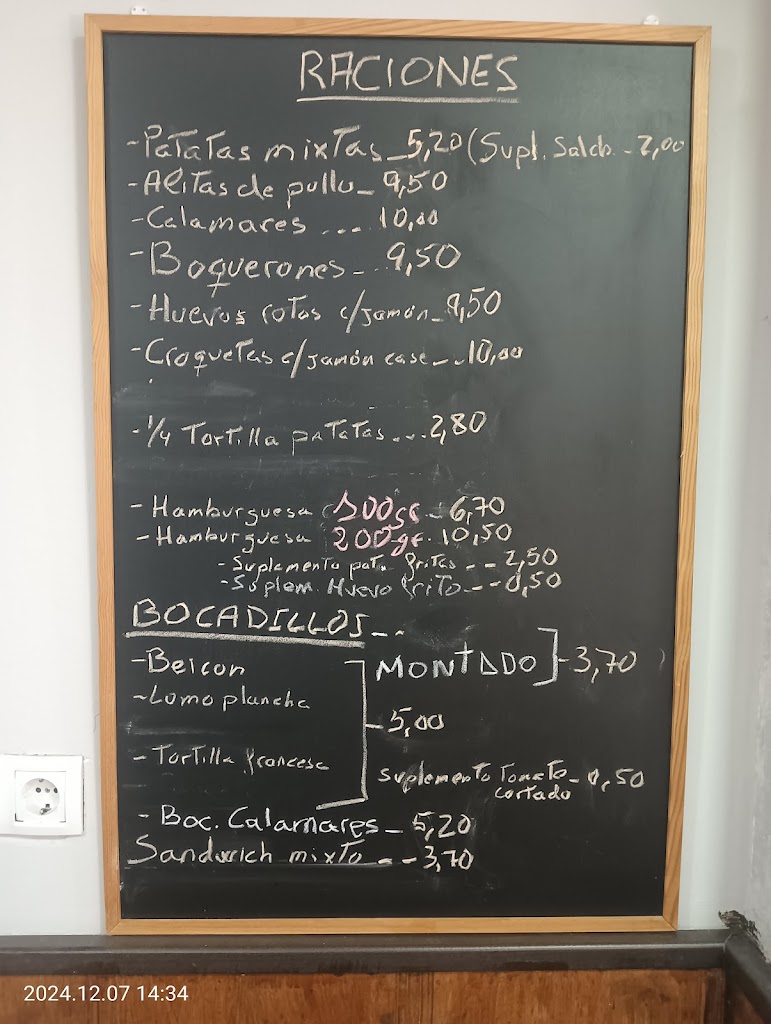 RACIONES
-Patatas mixtas_5,20 (Supl. Salch. - 2,00
-Alitas de pollo_ 9,50
-Calamares ... 10,00
-Boquerones_ .. 9,50
-Huevos rotos c/jamón_ 9,50
-Croquetas c/jamón case_..10,00
-1/4 Tortilla patatas...2,80
-Hamburguesa (100gr - 6,70
-Hamburguesa 200gr. 10,50
-Suplemento pat. fritas -- 2,50
-Suplem. Huevo frito--- 0,50
BOCADILLOS_..
-Beicon
MONTADO]-3,70
-Lomo plancha
-5,00
-Tortilla francesa
Suplemento Tomate_0,50
cortado
-Boc. Calamares_ 5,20
Sandwich mixto_ -- 3,70
2024.12.07 14:34